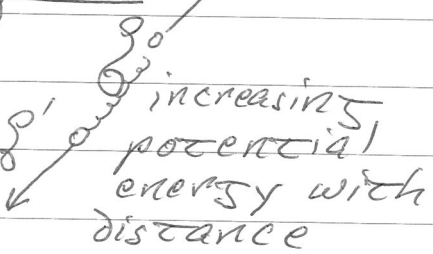 increasing
potential
energy with
distance